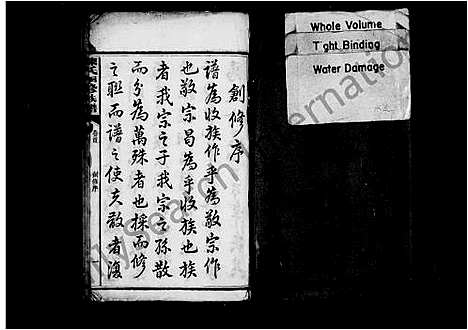 創修序
譜為收族作乎為敬宗作
也敬宗曷為乎收族也族
者我宗之子我宗之孫散
而分為萬殊者也採而修
之聯而譜之使夫散者復
卷首
創修序
Whole Volume
Tight Binding
Water Damage